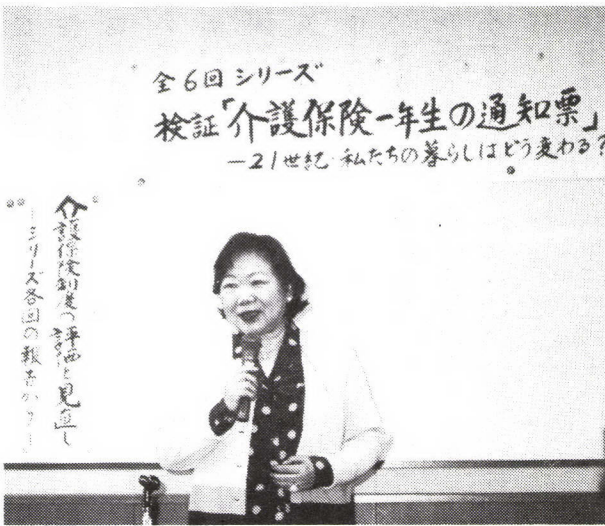 全6回シリーズ
検証「介護保険一年生の通知票」
―21世紀・私たちの暮らしはどう変わる?
介護保険制度の評価と見直し
―シリーズ各回の報告から―